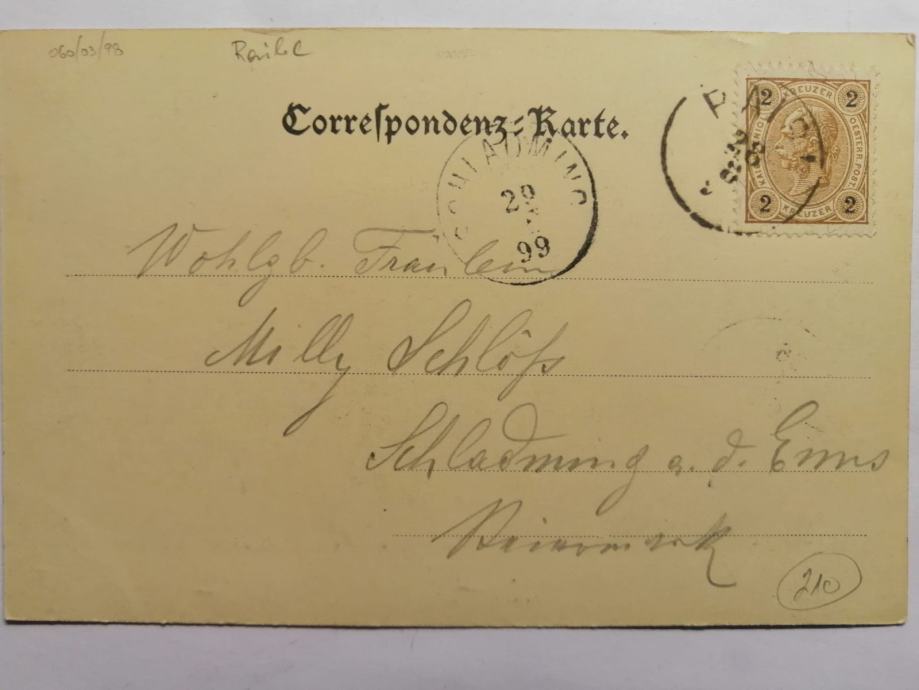 060/03/98
Raibl
Correspondenz-Karte.
2 KREUZER 2
OESTERR. POST.
2 KREUZER 2
SCHLADMING
29
99
Wohlgb. Fräulein
Milly Schlöss
Schladming a. d. Enns
Steiermark
210